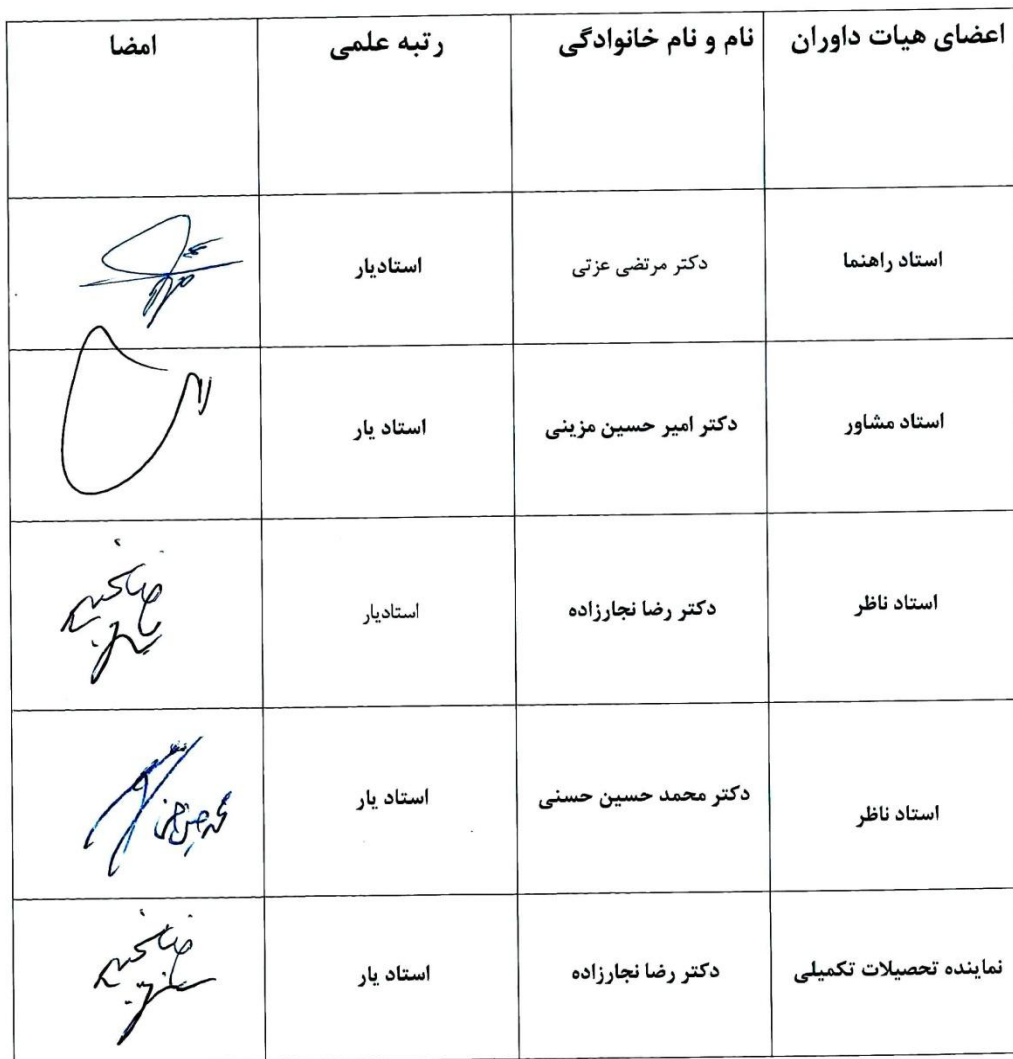 اعضای هیات داوران نام و نام خانوادگی رتبه علمی امضا
استاد راهنما دکتر مرتضی عزتی استادیار
استاد مشاور دکتر امیر حسین مزینی استاد یار
استاد ناظر دکتر رضا نجارزاده استادیار
استاد ناظر دکتر محمد حسین حسنی استاد یار
نماینده تحصیلات تکمیلی دکتر رضا نجارزاده استاد یار